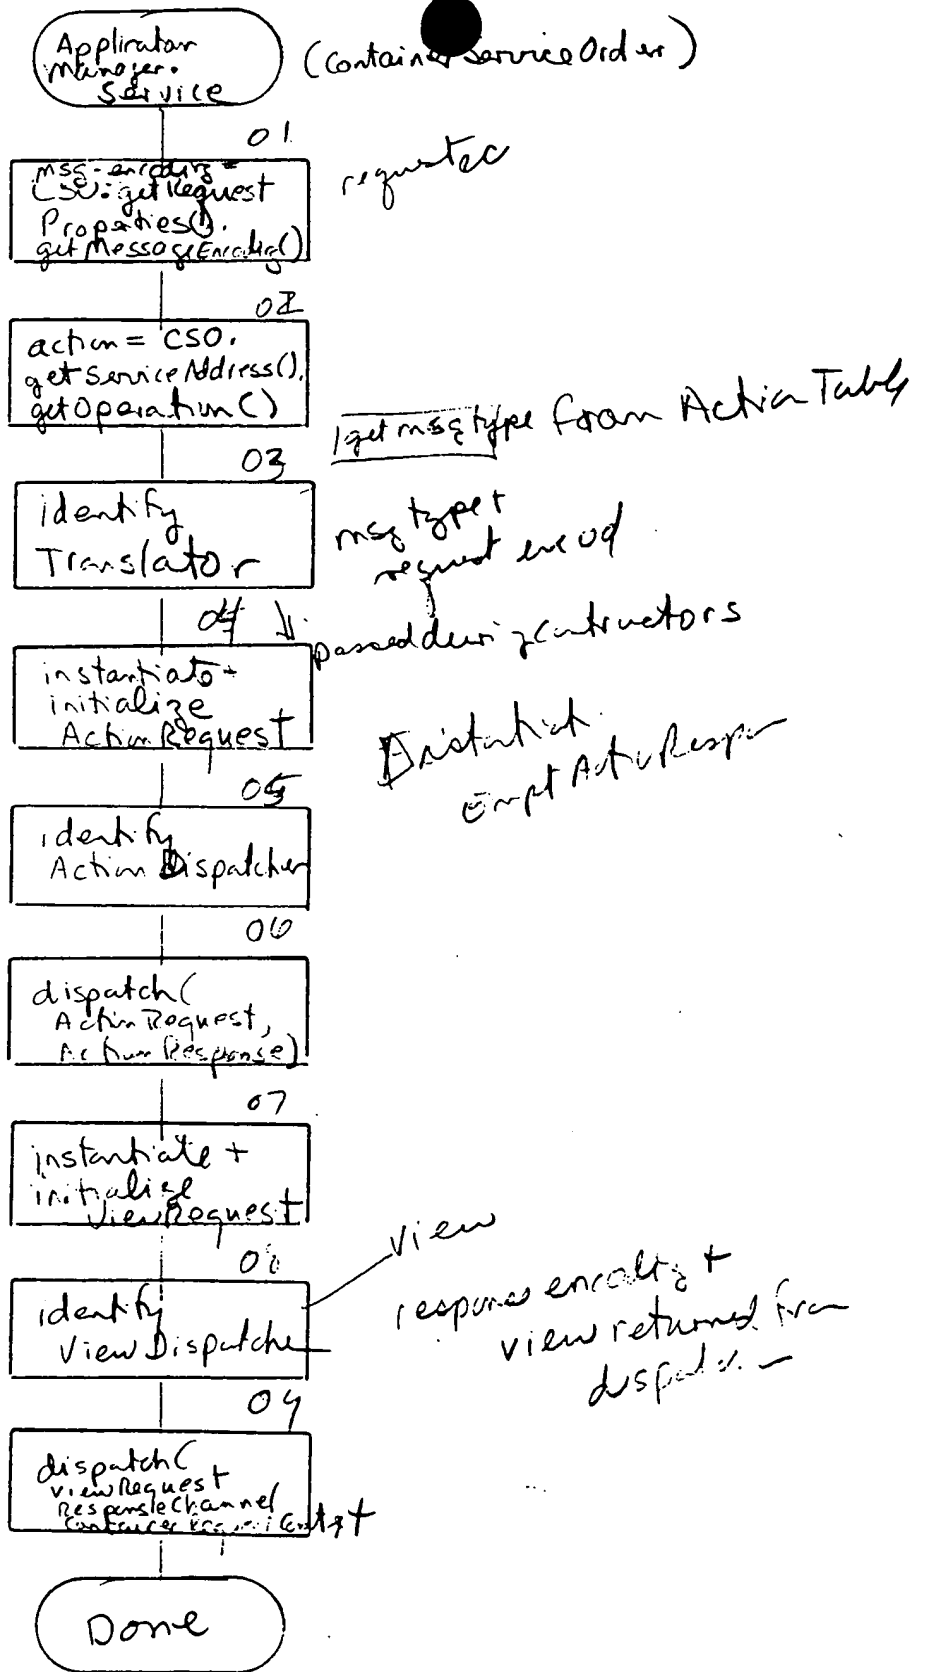 Application
Manager.
Service
(ContainerServiceOrder)
01
msg-encoding =
CSO.getRequest
Properties().
getMessageEncoding()
request
02
action = CSO.
getServiceAddress().
getOperation()
get msg type from Action Table
03
identify
Translator
msg type +
request encod
04
passed during contructors
instantiate +
initialize
ActionRequest
Instantiat
Empt Action Respon
05
identify
Action Dispatcher
06
dispatch(
ActionRequest,
ActionResponse)
07
instantiate +
initialize
ViewRequest
view
08
identify
View Dispatcher
response encoding +
view returned from
09
dispatch(
viewRequest
ResponseChannel
Container
Done